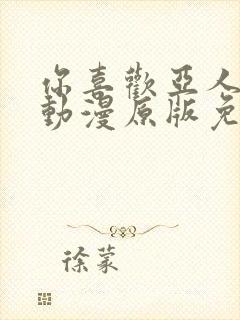 你喜歡亞人
動漫原版免
徐蒙